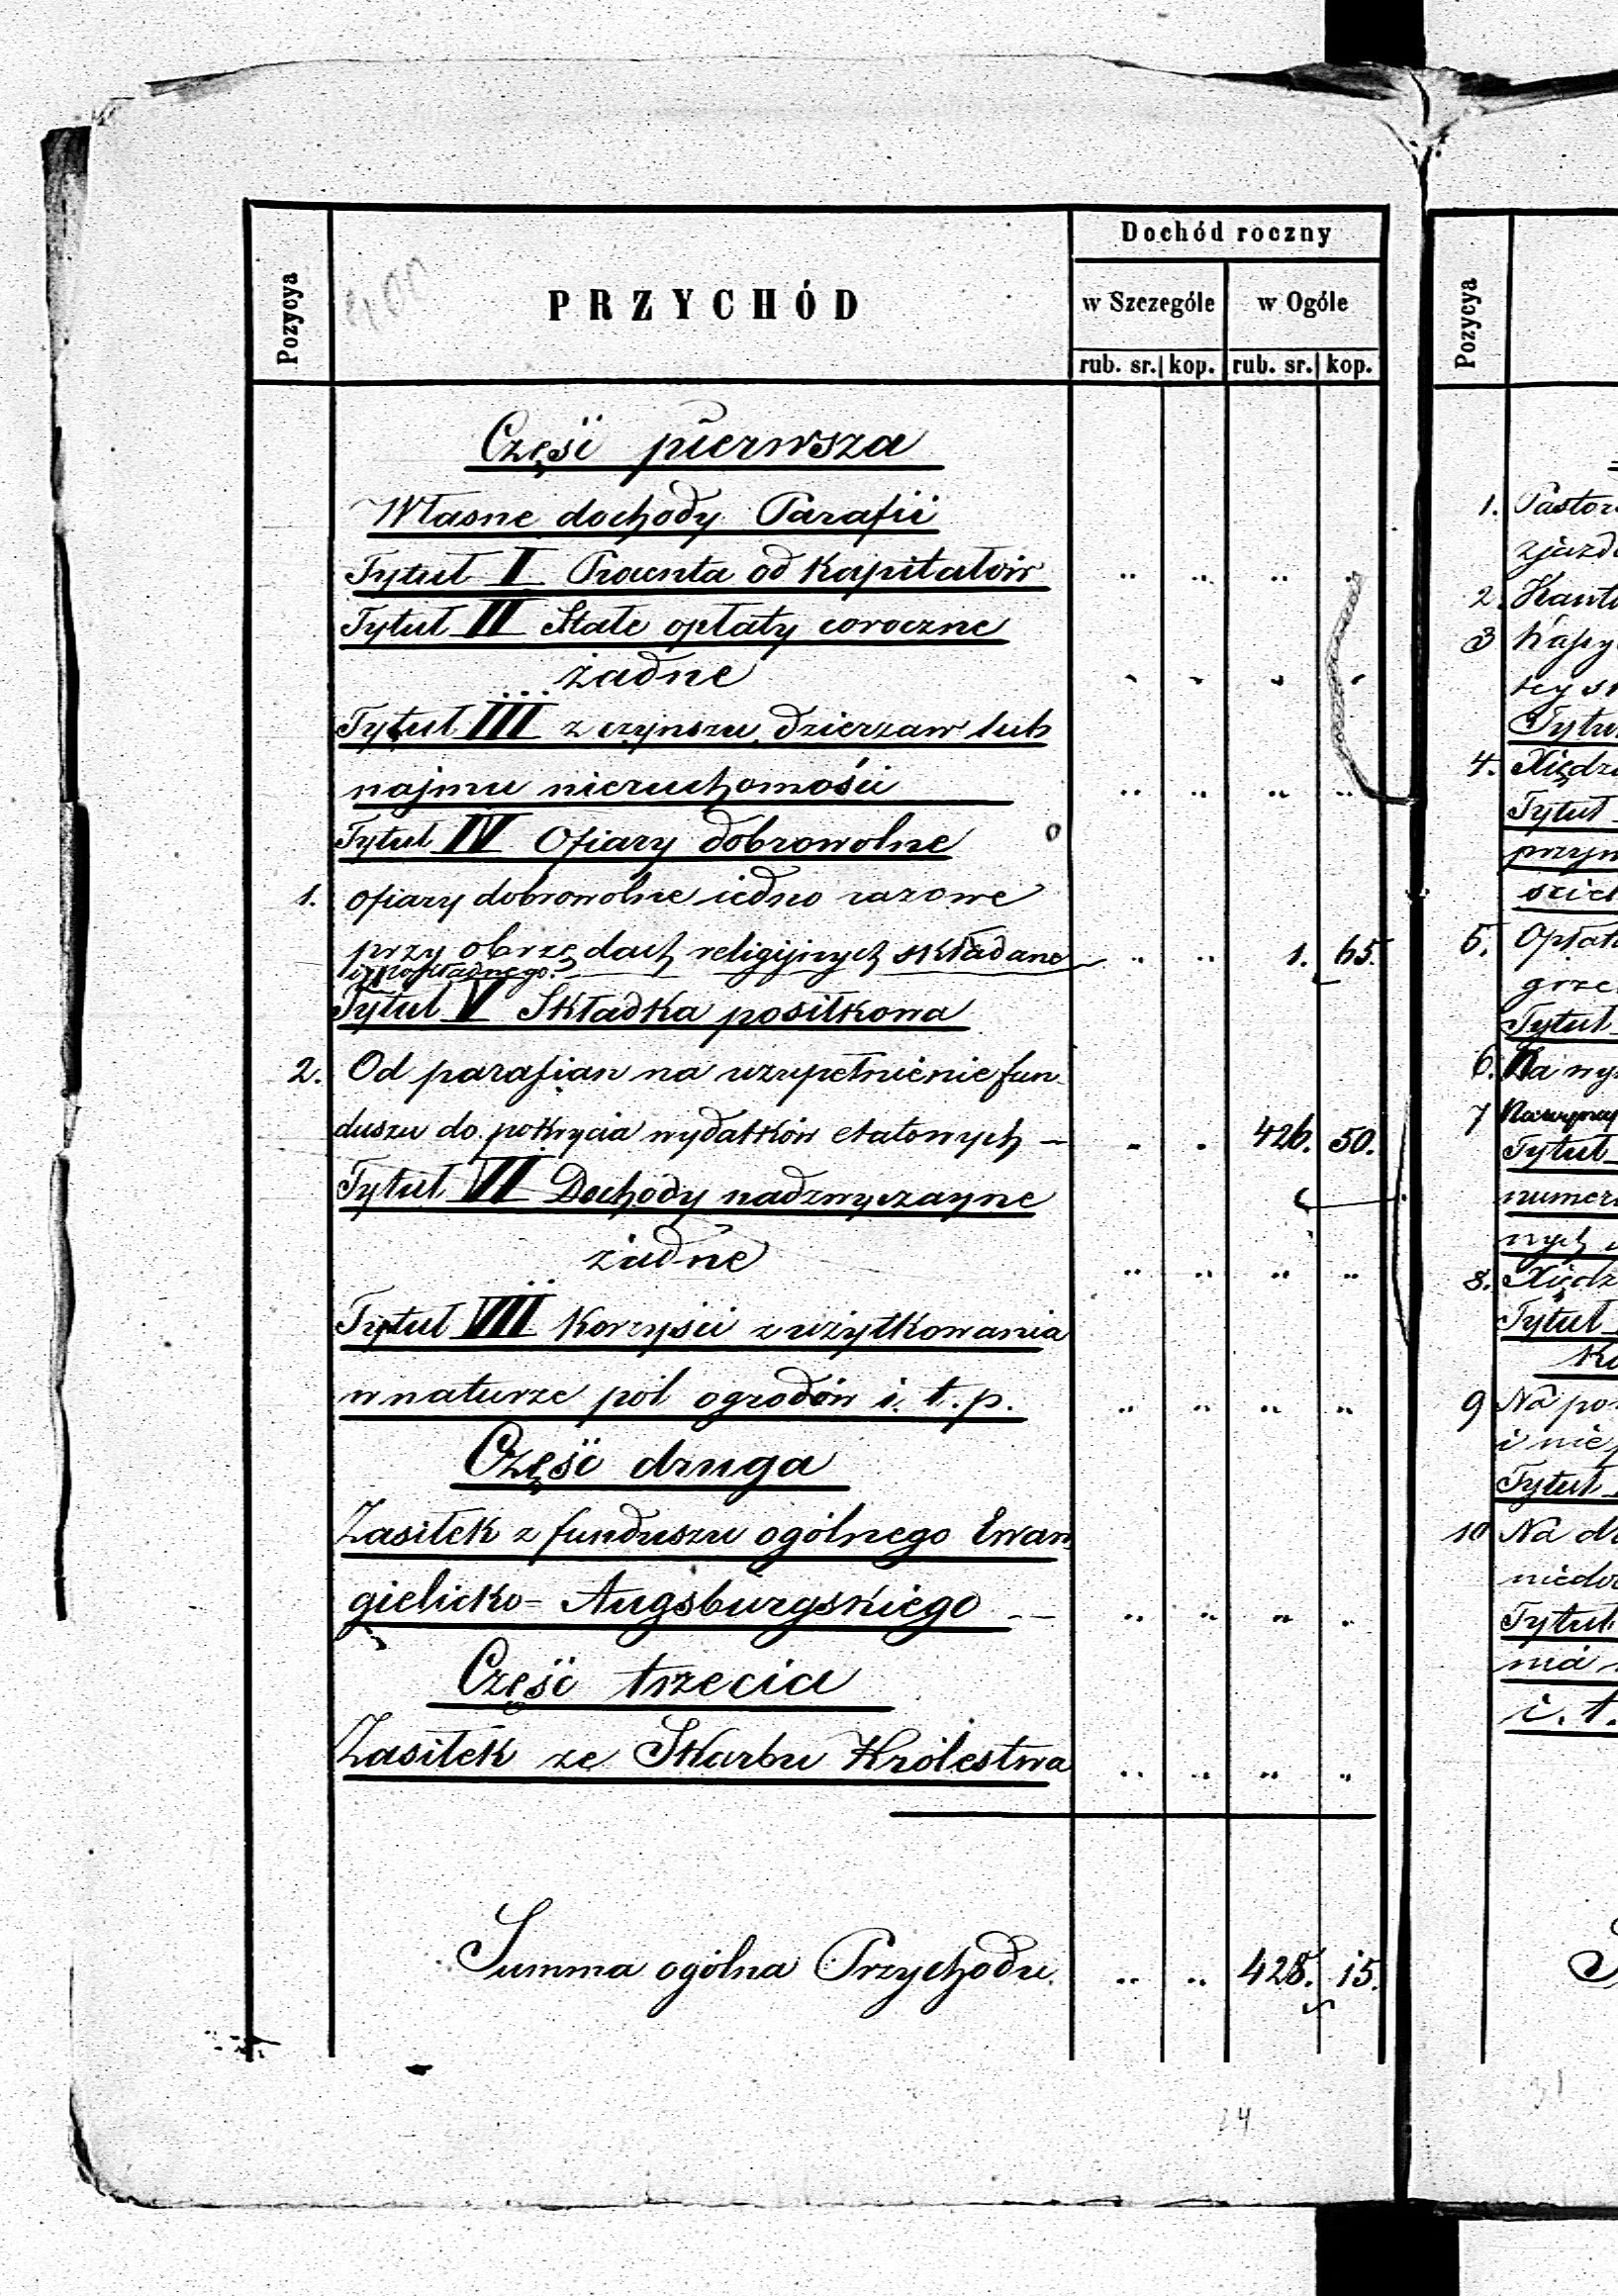 Pozycya
PRZYCHÓD
Dochód roczny
w Szczególe
w Ogóle
rub. sr. kop. rub. sr. kop.
Część pierwsza
Własne dochody Parafii
Tytuł I Procenta od Kapitałów
Tytuł II Stałe opłaty coroczne
żadne
Tytuł III z czynszu, dzierzaw lub
najmu nieruchomości
Tytuł IV Ofiary dobrowolne
1. ofiary dobrowolne iedno razowe
przy obrzędach religijnych składane 1. 65.
Tytuł V Składka posiłkowa
2. Od parafian na uzupełnienie fun-
duszu do pokrycia wydatków etatowych - 426. 50.
Tytuł VI Dochody nadzwyczayne
żadne
Tytuł VII Korzyści z użytkowania
w naturze pól ogrodów i. t. p.
Część druga
Zasiłek z funduszu ogólnego Ewan-
gielicko=Augsburgskiego
Część trzecia
Zasiłek ze Skarbu Królestwa
Summa ogólna Przychodu 428. 15.
24
Pozycya
1.
2. Kanto
3
Tytuł
4. Xiędz
Tytuł
5. Opłat
Tytuł
6. Na
7
Tytuł
8. Xiędz
Tytuł
9 Na
i nie
Tytuł
10 Na
Tytuł
i. t.